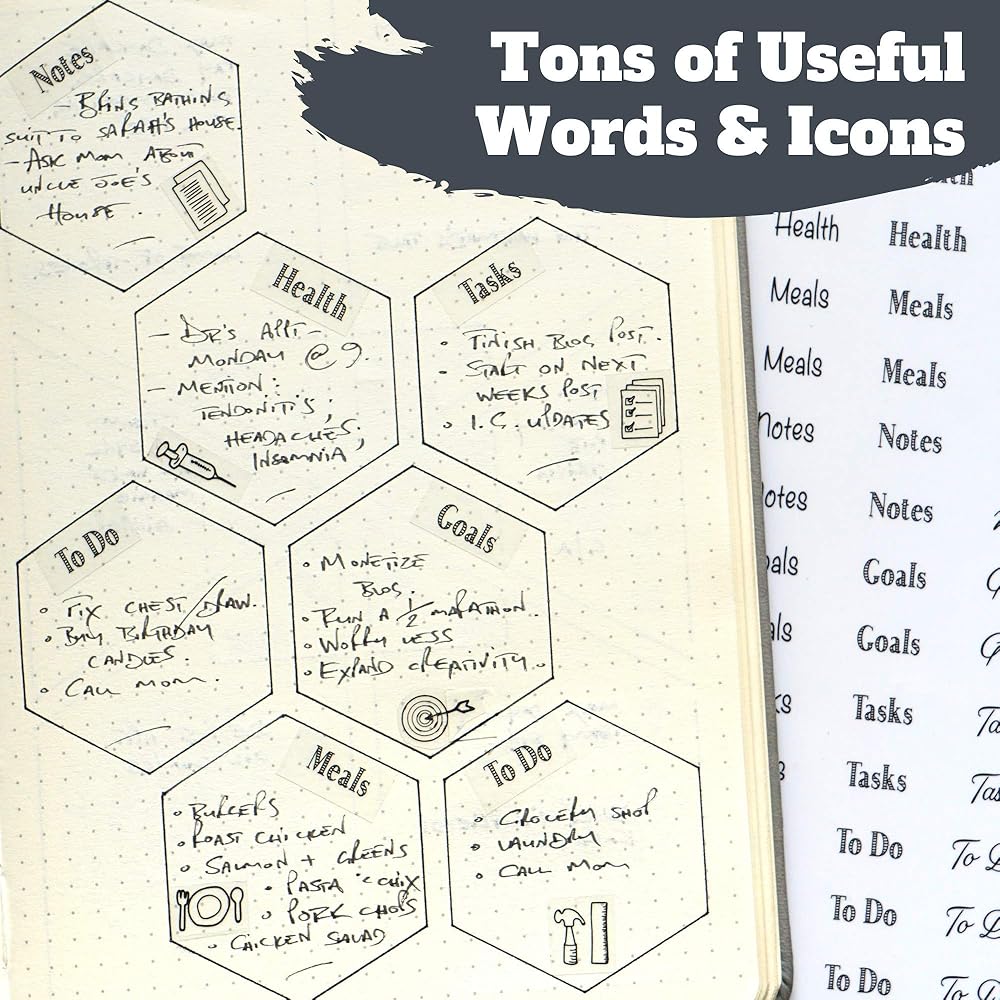 Tons of Useful
Words & Icons
Notes
- BRING BATHING
SUIT TO SARAH'S HOUSE.
- ASK MOM ABOUT
UNCLE JOE'S
HOUSE.
Health
- DR'S APPT -
MONDAY @ 9.
- MENTION:
TENDONITIS;
HEADACHES;
INSOMNIA
Tasks
• FINISH BLOG POST.
- START ON NEXT
WEEKS POST
• I.G. UPDATES
To Do
• FIX CHEST DRAW.
• BUY BIRTHDAY
CANDLES.
• CALL MOM.
Goals
• MONETIZE
BLOG.
• RUN A 1/2 MARATHON.
• WORRY LESS
• EXPAND CREATIVITY.
Meals
• BURGERS
• ROAST CHICKEN
• SALMON + GREENS
• PASTA & CHIX
• PORK CHOPS
• CHICKEN SALAD
To Do
• GROCERY SHOP
• LAUNDRY
• CALL MOM
Health Health
Meals Meals
Meals Meals
Notes Notes
otes Notes
als Goals
als Goals
ks Tasks Ta
Tasks Tas
To Do To D
To Do To D
To Do To D